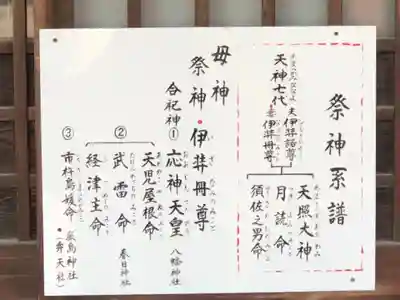 祭神系譜
天照大神
月読命
須佐之男命
天神七代
夫伊弉諾尊
妻伊弉冊尊
母神
祭神・伊弉冊尊
合祀神
①応神天皇 八幡神社
②天児屋根命
武雷命 春日神社
経津主命
③市杵島媛命・厳島神社(弁天社)